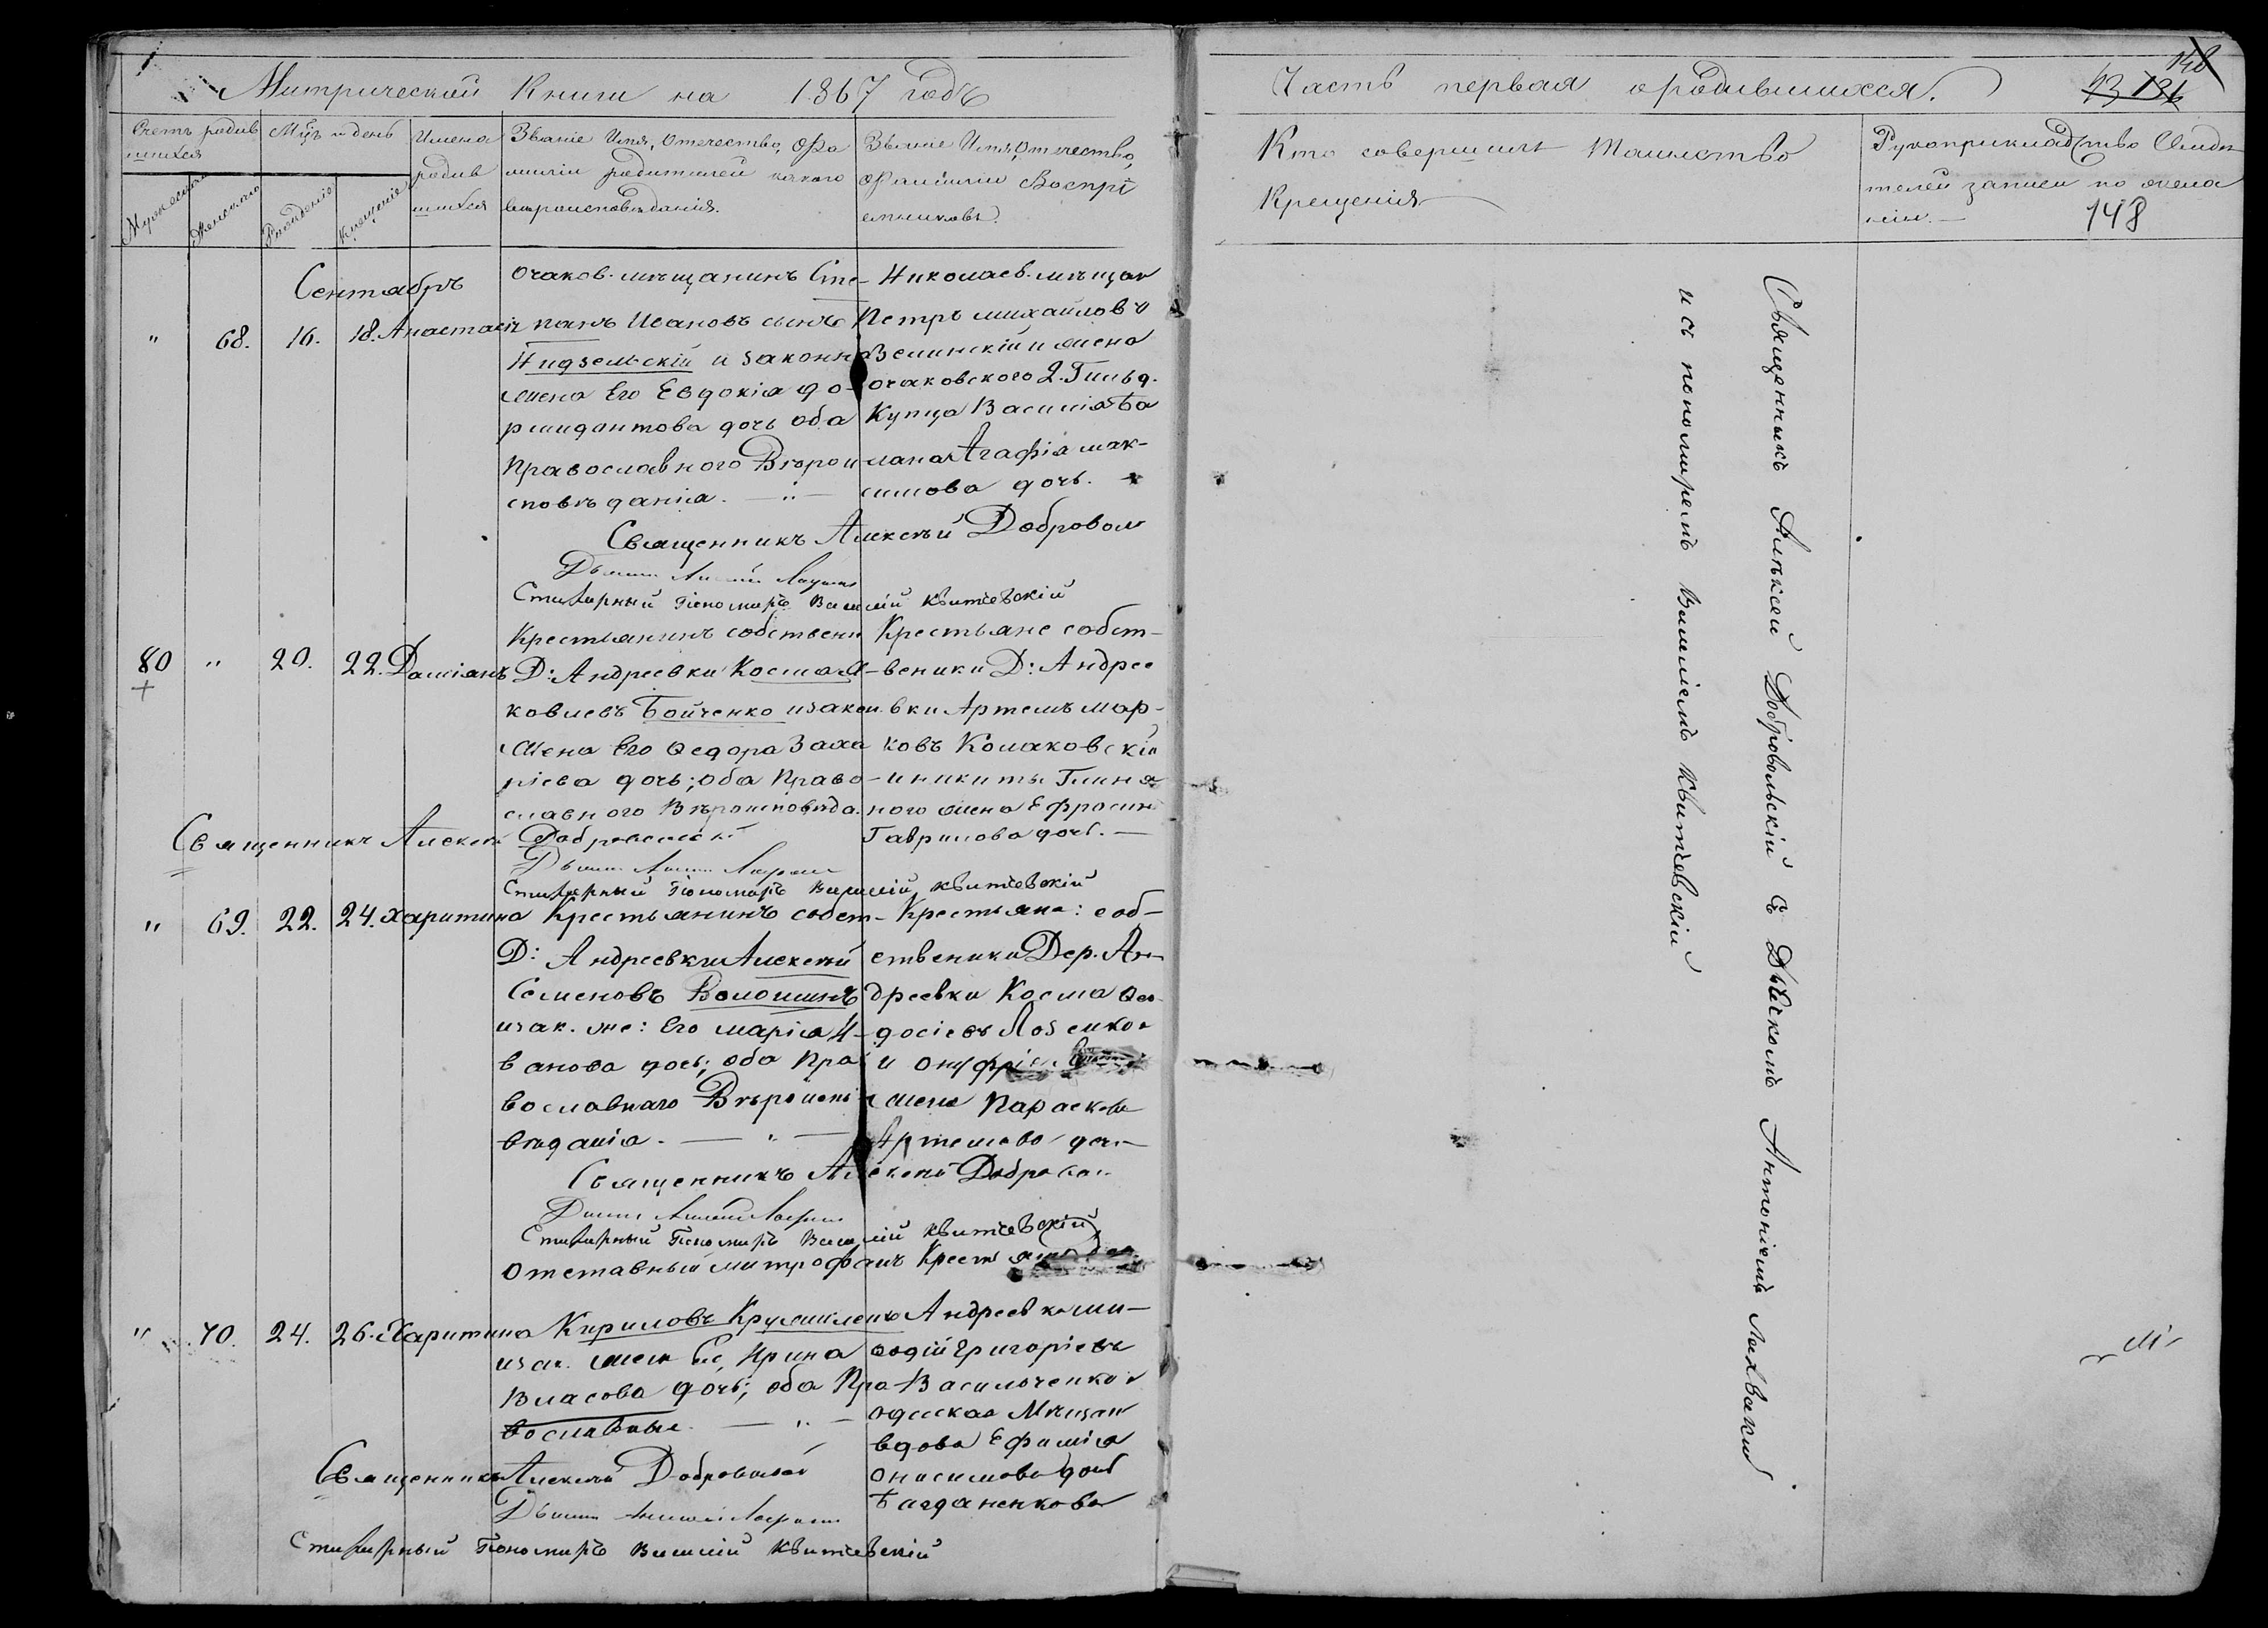 Митрической Книги на 1867 годъ
Счетъ родив
шихся
Мужеска
Женска
Мцъ и день
Рожденіе
Крещеніе
Имена
родив
шихся
Званіе Имя, Отчество, Фа
миліи родителей какого
вѣроисповѣданія.
Званіе Имя, Отчество,
Фамиліи Воспрі
емниковъ.
Сентябрь
" 68. 16. 18. Анастасія
Очаков. мѣщанинъ Сте-
панъ Ивановъ сынъ
Нидзельскій и законн
жена Его Евдокія до-
рмидонтова дочь оба
Православного Вѣрои
сповѣданія. — " —
Николаев. мѣщан
Петръ михайловъ
Велинскій и жена
очаковского 2. Гильд.
Купца Василія Ба
лана Агафія мак-
симова дочь.
Священникъ Алексѣй Доброволь
Стихарный Пономарь Василій Квитсевскій
80 " 20. 22. Даміанъ
Крестьянинъ собствени
Д: Андреевки Косма Я-
ковлевъ Бойченко и закон.
жена Его Ѳедора Заха
ріева дочь; оба Право-
славного Вѣроисповѣда.
Крестьяне собст-
веники Д: Андрее
вки Артемъ мар-
ковъ Колаковскій
и никиты Глиня
ного жена Ефросин
Гаврилова дочь. —
Священникъ Алексѣй Добровольскі
Стихарный Пономарь Василій Квитсевскій
" 69. 22. 24. Харитина
Крестьянинъ собст-
Д: Андреевки Алексѣй
Семеновъ Волошинъ
и зак. же: Его марія И-
ванова дочь; оба Пра
вославнаго Вѣроиспо
вѣданія. — " —
Крестьяне: соб-
ственики Дер. Ан-
дреевки Косма Ѳео
досіевъ Лозенко
и Онуфрія
жена Параскева
Артемова доч.—
Священникъ Алексѣй Добровол
Стихарный Пономарь Василій Квитсевскій
" 70. 24. 26. Харитина
Отставный митрофанъ
Кириловъ
и зак. жена Его, Ирина
Власова дочь; оба Пра-
вославные. — " —
Крестьян
Андреевки ми-
фодій Григоріевъ
Василоченко и
одесская Мѣщан
вдова Ефимія
Онисимова доч
Багданенкова
Священникъ Алексѣй Доброволь
Стихарный Пономарь Василій Квитсевскій
Часть первая о родившихся.
148
13 136
Кто совершилъ Таинство
Крещенія
Рукоприкладство Свидѣ
телей записи по жела
нію. —
148
Священникъ Алѣксѣй Добровольскій съ Дьякомъ Антоніемъ
и съ пономаремъ Василіемъ Квитсевскій